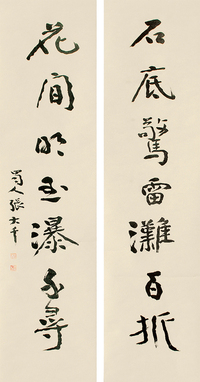 石底驚雷灘百折
花間明玉瀑千尋
蜀人張大千